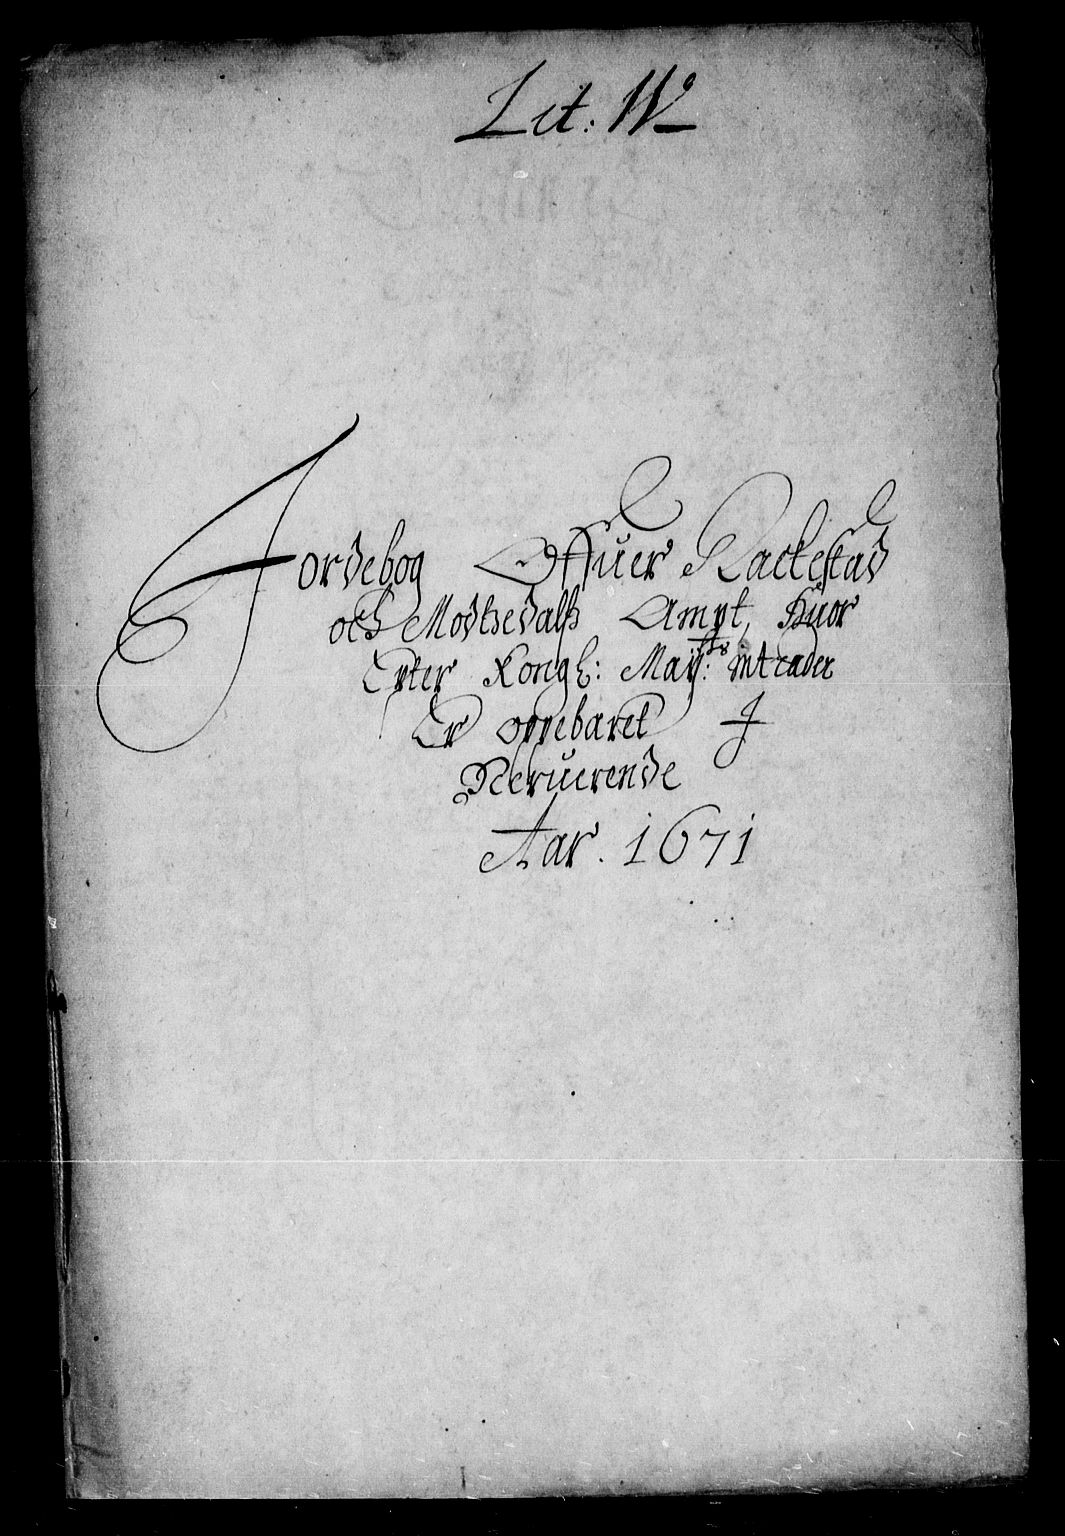 Lit: W
Jordebog Offuer Rackestad
och Modhedalß Ampt, Huor
Epter Kongl: May:ts intrader
Er oppebaret J
Neruerende
Aar. 1671